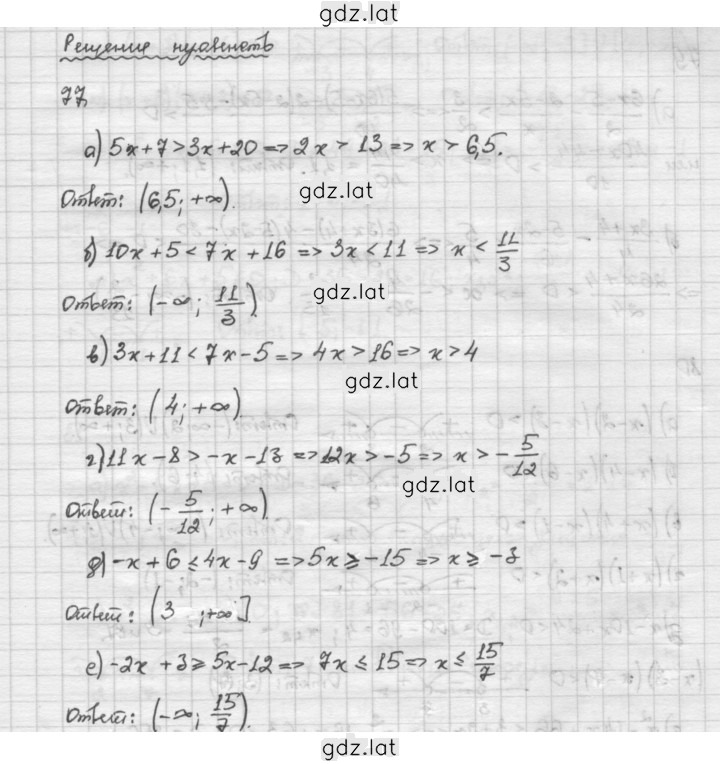 gdz.lat
Решение нравенств
77.
а) 5x+7>3x+20 => 2x > 13 => x > 6,5.
Ответ: (6,5; +∞).
gdz.lat
б) 10x+5<7x+16 => 3x<11 => x < 11/3
Ответ: (-∞; 11/3).
gdz.lat
в) 3x+11<7x-5 => 4x>16 => x>4
gdz.lat
Ответ: (4; +∞)
г) 11x-8>-x-13 => 12x>-5 => x>-5/12
gdz.lat
Ответ: (-5/12; +∞)
д) -x+6≤4x-9 => 5x≥-15 => x≥-3
Ответ: [3 ;+∞].
е) -2x+3≥5x-12 => 7x≤15 => x≤15/7
Ответ: (-∞; 15/7).
gdz.lat